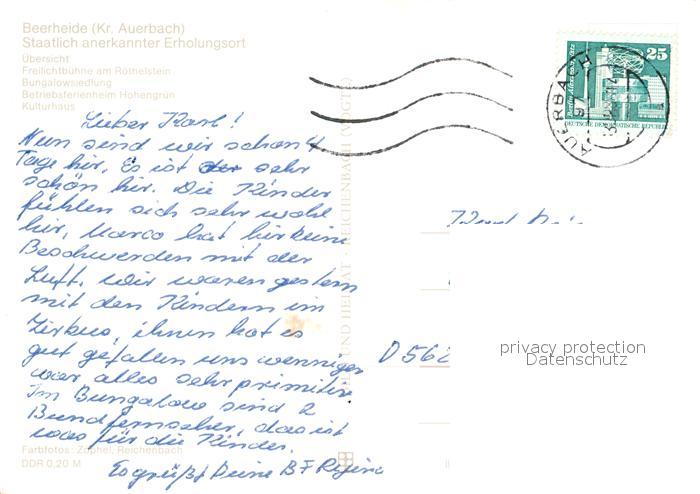 Beerheide (Kr. Auerbach)
Staatlich anerkannter Erholungsort
Übersicht
Freilichtbühne am Röthelstein
Bungalowsiedlung
Betriebsferienheim Hohengrün
Kulturhaus
Lieber Karl!
Nun sind wir schon 4
Tage hir. Es ist sehr
schön hir. Die Kinder
fühlen sich sehr wohl
hir, Marco hat hir keine
Beschwerden mit der
Luft. Wir waren gestern
mit den Kindern im
Zirkus, ihnen hat es
gut gefallen uns weniger
war alles sehr primitiv
Im Bungalow sind 2
Bundfernseher, das ist
was für die Kinder.
Es grüßt Deine BF Regina
Farbfotos: Zöphel, Reichenbach
DDR 0,20 M
UND HEIMAT · REICHENBACH (VOGTL)
25
DEUTSCHE DEMOKRATISCHE REPUBLIK
AUERBACH
D 562
privacy protection
Datenschutz